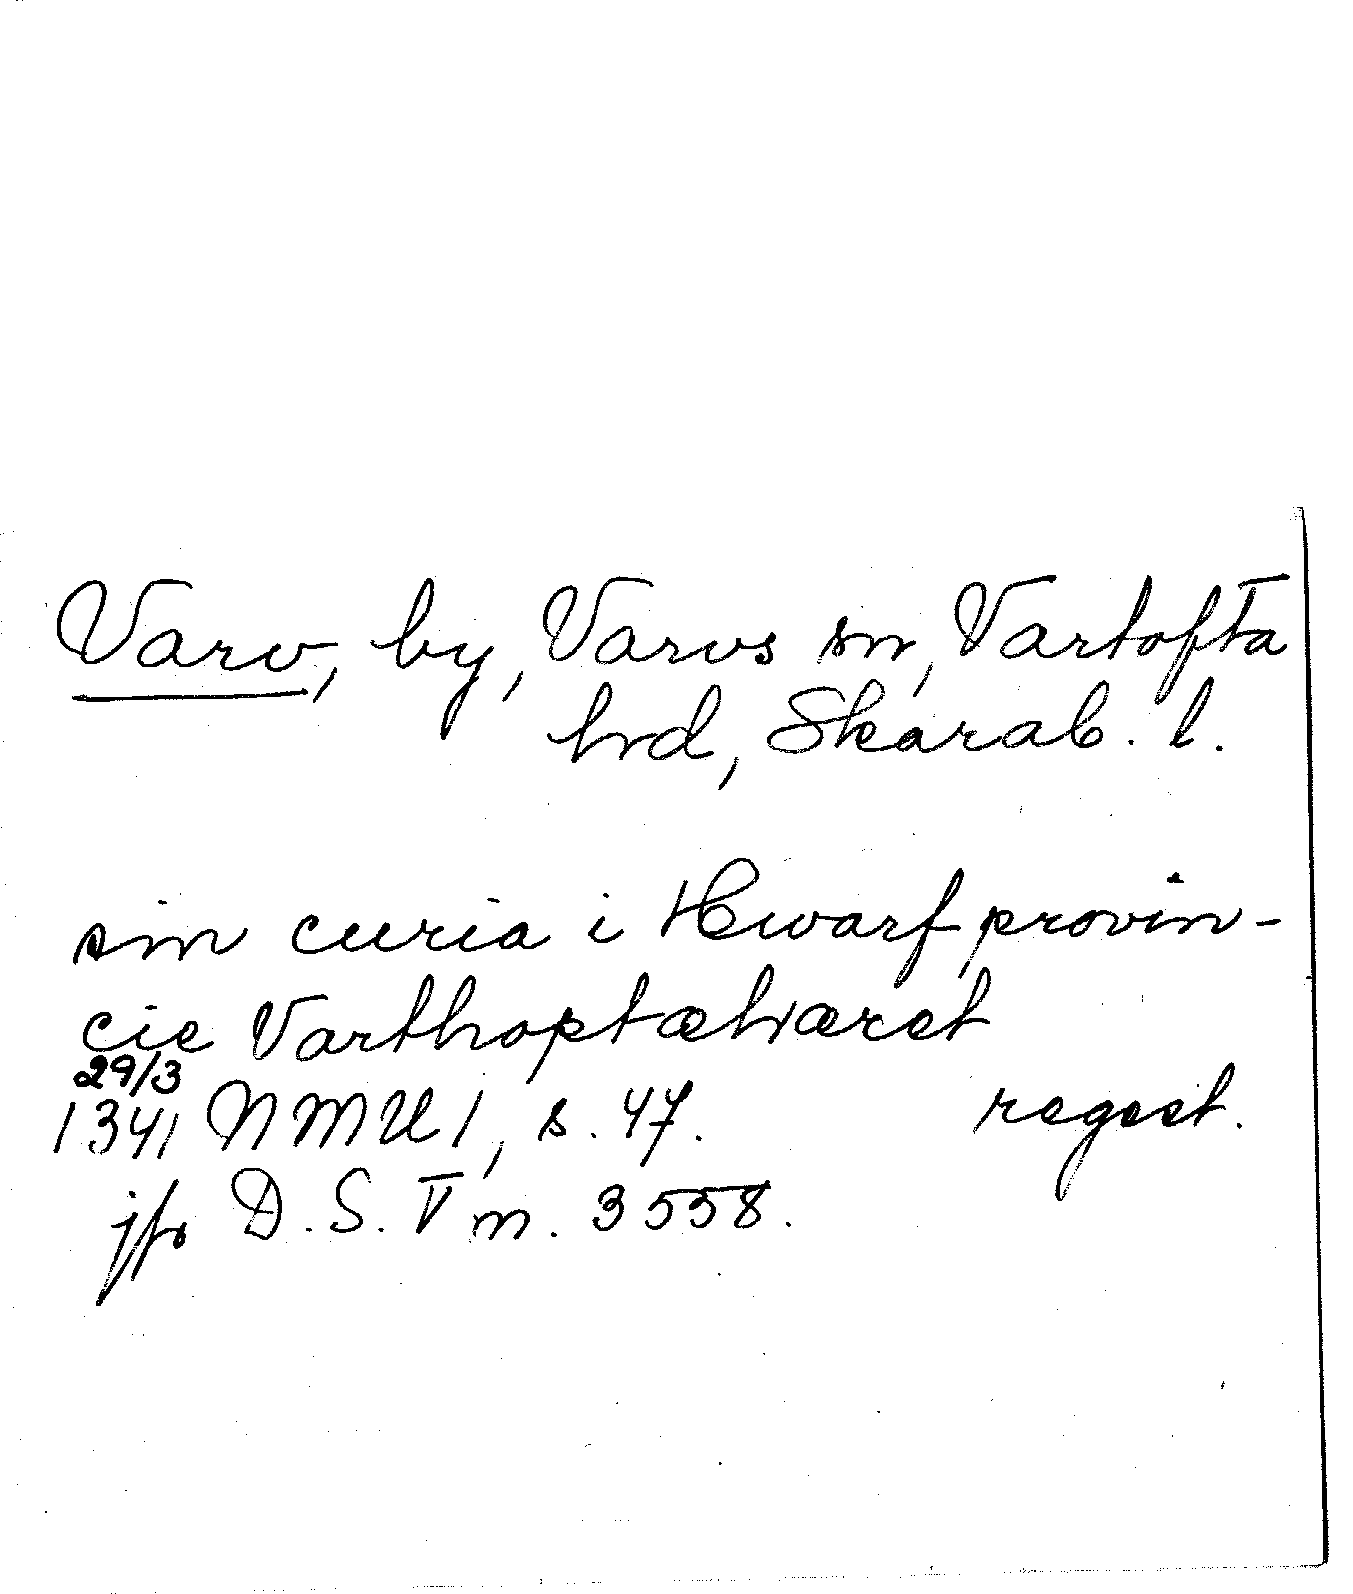 Varv, by, Varvs sn, Vartofta
hrd, Skarab. l.
sin curia i Hwarf provin-
cie Varthoptæhæret
29/3
1341 NMU 1, s. 47. regest.
jfr D. S. V n. 3558.